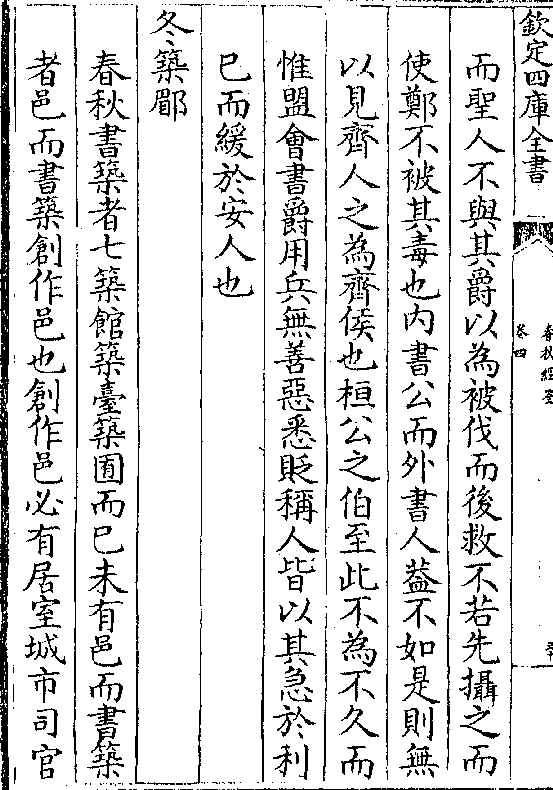 欽定四庫全書
卷四
而聖人不與其爵以為被伐而後救不若先攝之而
使鄭不被其毒也内書公而外書人葢不如是則無
以見齊人之為齊侯也桓公之伯至此不為不久而
惟盟會書爵用兵無善惡悉貶稱人皆以其急於利
已而緩於安人也
冬築郿
春秋書築者七築館築臺築囿而已未有邑而書築
者邑而書築創作邑也創作邑必有居室城市司官